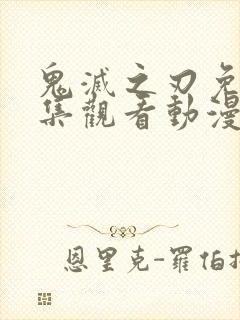 鬼滅之刃免
集觀看動漫
恩里克-羅伯托